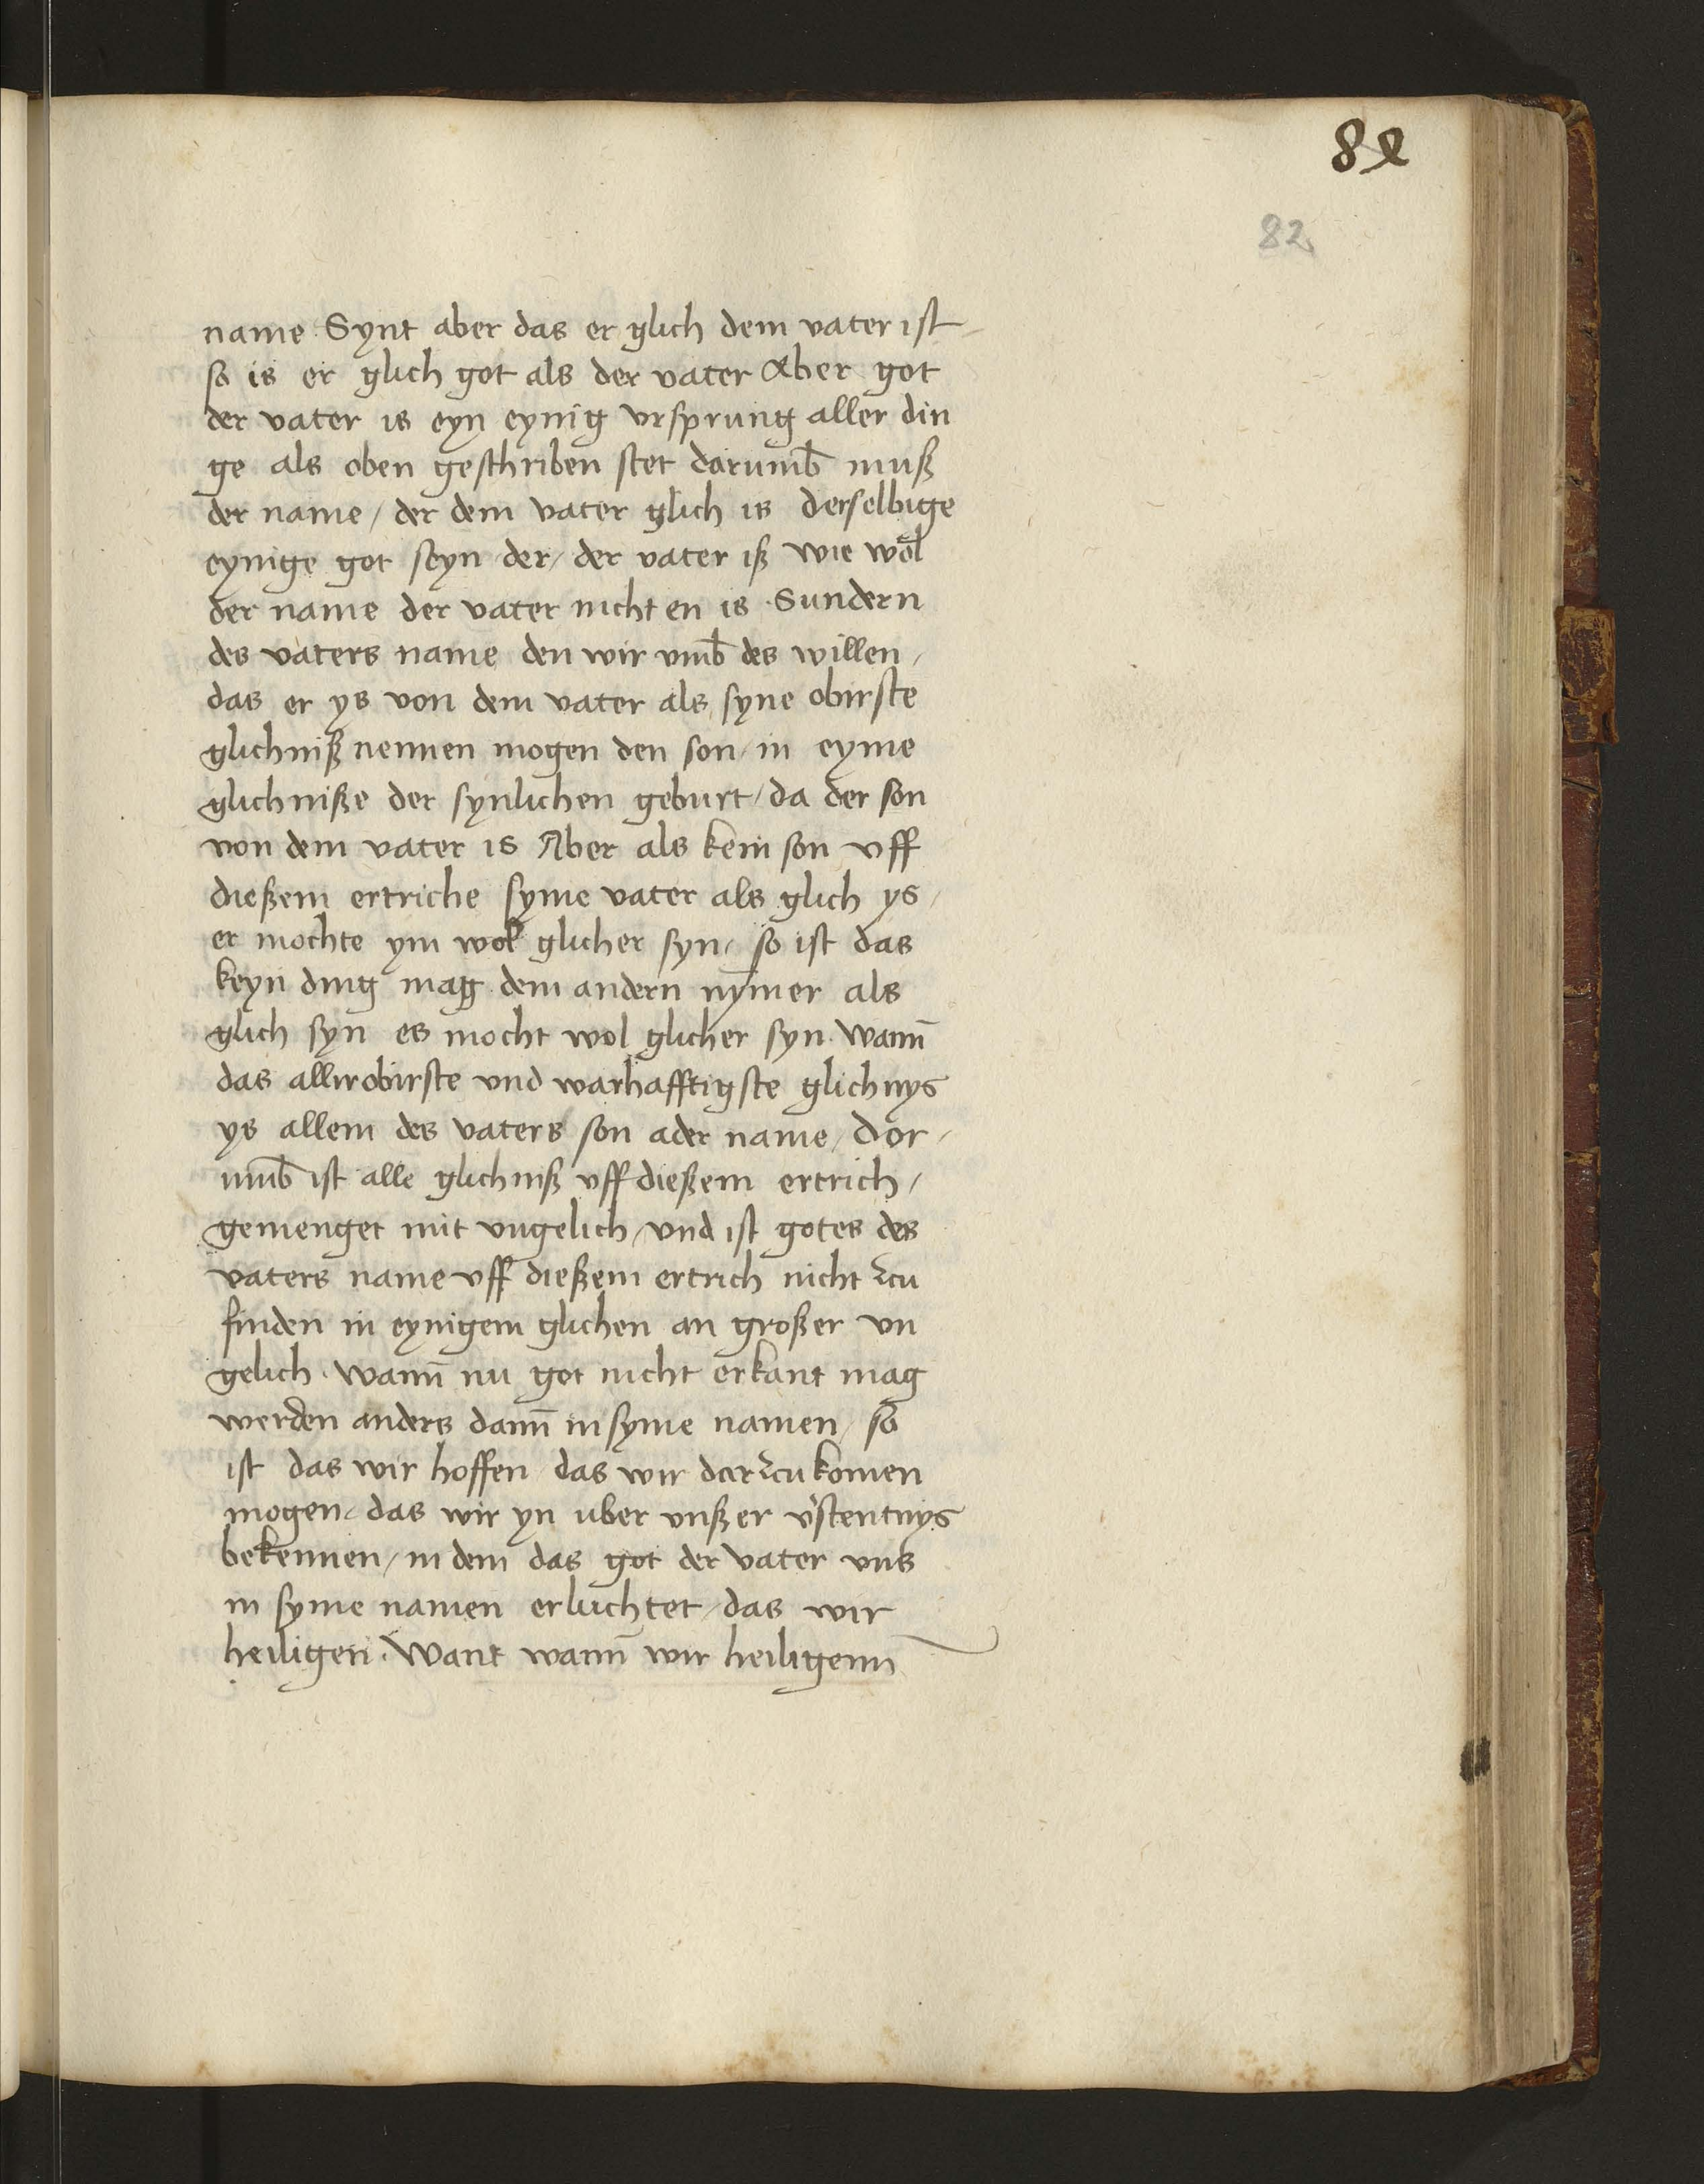 82
82
name Synt aber das er glich dem vater ist /
so is er glich got als der vater Aber got
der vater is eyn eynig vrsprung aller din
ge als oben geschriben stet darumb̄ muß
der name / der dem vater glich is derselbige
eynige got seyn der / der vater iß wie wol
der name der vater nicht en is Sundern
des vaters name den wir vmb̄ des willen /
das er ys von dem vater als syne obirste
glichniß nennen mogen den son / in eyme
glichniße der synlichen geburt / da der son
von dem vater is Aber als kein son vff
dießem ertriche syme vater als glich ys /
er mochte ym wol glicher syn / so ist das
keyn ding mag dem andern nym̄er als
glich syn es mocht wol glicher syn. Wann̄
das allirobirste vnd warhafftigste glichnys
ys allein des vaters son ader name / dor /
vmb̄ ist alle glichniß vff dießem ertrich /
gemenget mit vngelich / vnd ist gotes des
vaters name vff dießem ertrich nicht zcu
finden in eynigem glichen an großer vn
gelich. Wann̄ nu got nicht erkant mag
werden anders dann̄ in syme namen / so
ist das wir hoffen das wir darzcu komen
mogen / das wir yn uber vnßer v'stentnys
bekennen / in dem das got der vater vns
in syme namen erluchtet / das wir
heiligen. Want wann̄ wir heiligenn